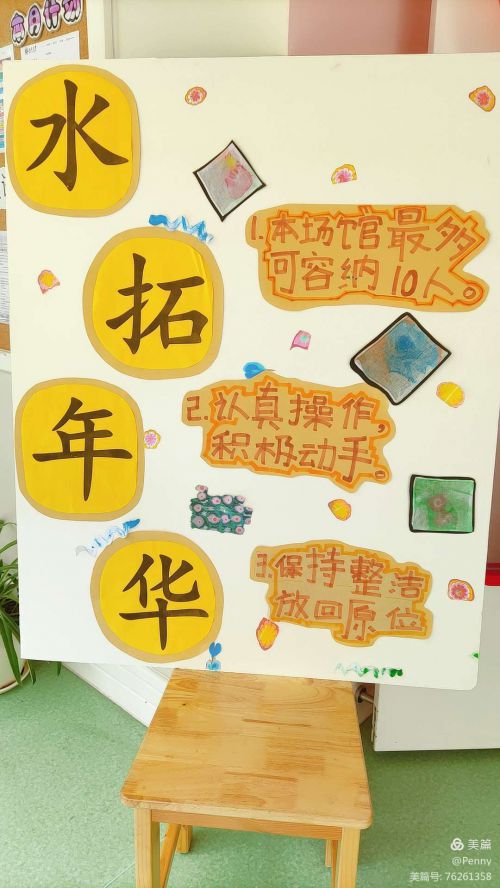 本月计划
水
拓
年
华
1.本场馆最多
可容纳10人。
2.认真操作,
积极动手。
3.保持整洁
放回原位
美篇
@Penny
美篇号: 76261358